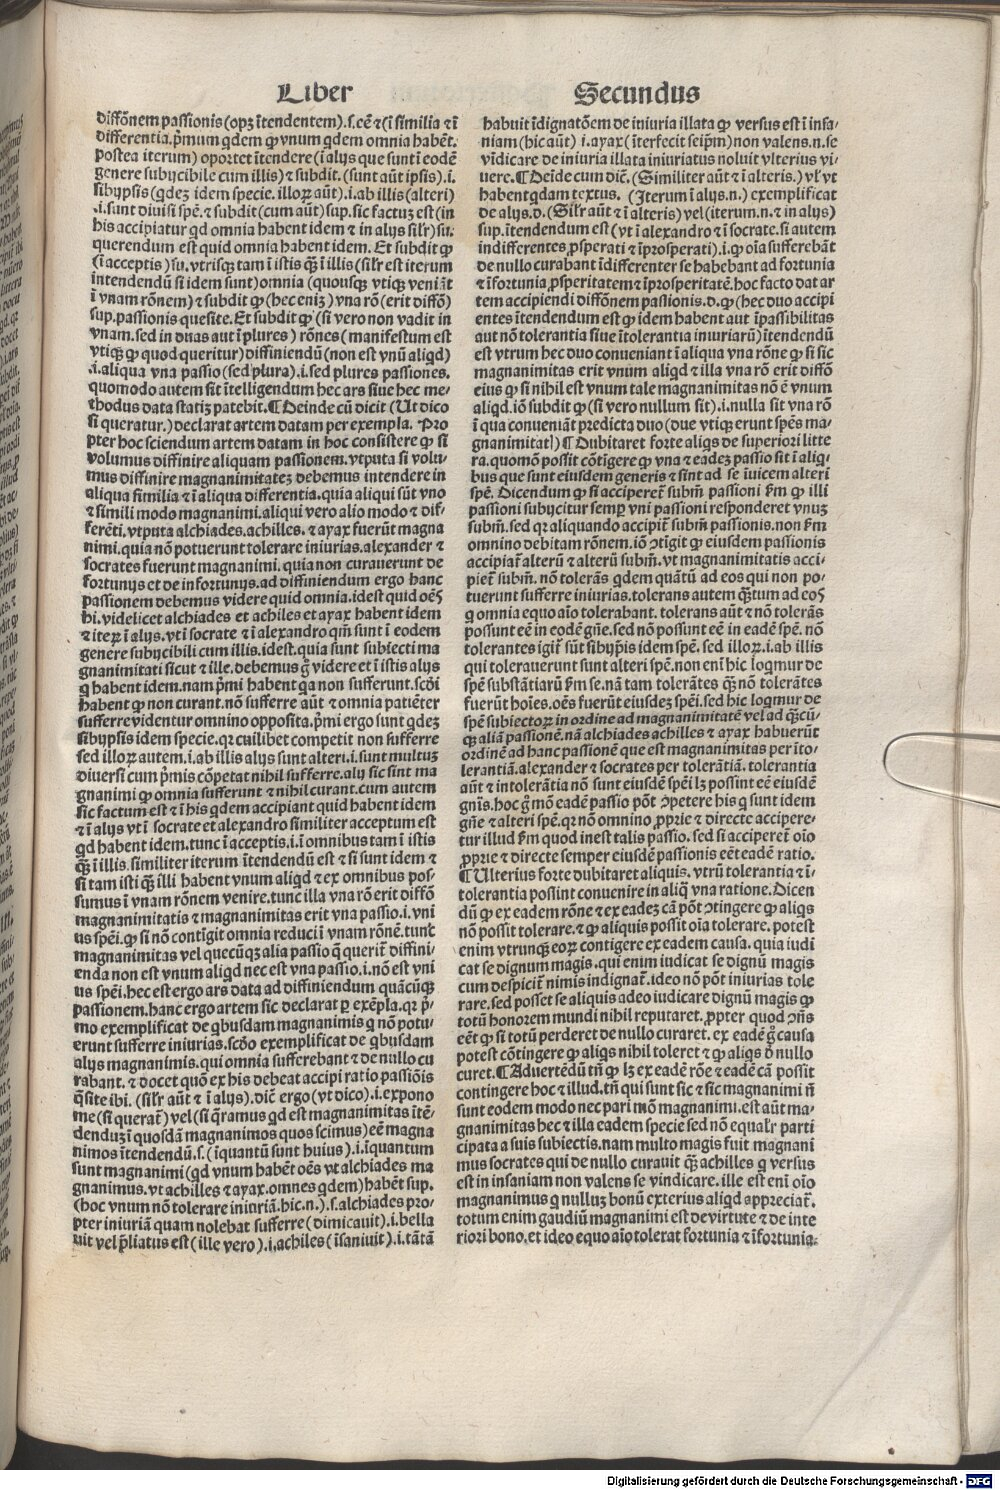 Liber Secundus
diffōnem passionis (opꝫ ītendentem).s.eē ⁊ (ī similia ⁊ ī
differentia.p̄mum qdem ꝙ vnum qdem omnia habēt.
Postea iterum) oportet ītendere (ī alijs que sunt ī eodē
genere subijcibile cum illis) ⁊ subdit. (sunt aūt ipsis).i.
sibijpsis (qdeꝫ idem specie. illoꝝ aūt).i.ab illis (alteri)
.i.sunt diuisi spē.⁊ subdit (cum aūt) sup. sic factuꝫ est (in
his accipiatur qd omnia habent idem ⁊ in alijs silʳ) su.
querendum est quid omnia habent idem. Et subdit ꝙ
(ī acceptis) su. vtrisqꝫ tam ī istis qȝ̄ ī illis (silʳ est iterum
intendendū si idem sunt) omnia (quousqꝫ vtiqꝫ veniāt
ī vnam rōnem) ⁊ subdit ꝙ (hec enīꝫ) vna rō (erit diffō)
sup.passionis quesite. Et subdit ꝙ (si vero non vadit in
vnam. sed in duas aut ī plures) rōnes (manifestum est
vtiqꝫ ꝙ quod queritur) diffiniendū (non est vnū aliqd)
.i.aliqua vna passio (sed plura).i.sed plures passiones.
quomodo autem sit ītelligendum hec ars siue hec me-
thodus data statiꝫ patebit. ¶ Deinde cū dicit (Ut dico
si queratur.) declarat artem datam per exempla. Pro
pter hoc sciendum artem datam in hoc consistere ꝙ si
volumus diffinire aliquam passionem. vtputa si volu-
mus diffinire magnanimitateꝫ debemus intendere in
aliqua similia ⁊ ī aliqua differentia.quia aliqui sūt vno
⁊ simili modo magnanimi.aliqui vero alio modo ⁊ dif-
ferēti.vtputa alchiades.achilles. ⁊ ayax fuerūt magna
nimi.quia nō potuerunt tolerare iniurias.alexander ⁊
socrates fuerunt magnanimi. quia non curauerunt de
fortunijs et de infortunijs.ad diffiniendum ergo hanc
passionem debemus videre quid omnia.idest quid oēs
hi.videlicet alchiades et achiles et ayax habent idem
⁊ iteꝝ ī alijs. vt ī socrate ⁊ ī alexandro qm̄ sunt ī eodem
genere subijcibili cum illis.idest.quia sunt subiecti ma
gnanimitati sicut ⁊ ille.debemus g̊ videre et ī istis alijs
q habent idem.nam p̄mi habent qa non sufferunt.scōi
habent ꝙ non curant.nō sufferre aūt ⁊ omnia patiēter
sufferre videntur omnino opposita.p̄mi ergo sunt qdeꝫ
sibijpsis idem specie.qꝛ cuilibet competit non sufferre
sed illoꝝ autem.i.ab illis alijs sunt alteri.i.sunt multuꝫ
diuersi cum p̄mis cōpetat nihil sufferre.alij sic sint ma
gnanimi ꝙ omnia sufferunt ⁊ nihil curant.cum autem
sic factum est ⁊ ī his qdem accipiant quid habent idem
⁊ ī alijs vt ī socrate et alexandro similiter acceptum est
qd habent idem.tunc ī acceptis.i.ī omnibus tam ī istis
qȝ̄ ī illis.similiter iterum ītendendū est ⁊ si sunt idem ⁊
si tam isti qȝ̄ illi habent vnum aliqd ⁊ ex omnibus pos-
sumus ī vnam rōnem venire.tunc illa vna rō erit diffō
magnanimitatis ⁊ magnanimitas erit vna passio.i.vni
us spēi.ꝙ si nō contīgit omnia reduci ī vnam rōnē.tunc
magnanimitas vel quecūqꝫ alia passio q querit̄ diffini-
enda non est vnum aliqd nec est vna passio.i.nō est vni
us spēi.hec est ergo ars data ad diffiniendum quācūqꝫ
passionem.hanc ergo artem sic declarat ꝑ exēpla.qꝛ p̄-
mo exemplificat de qbusdam magnanimis q nō potu-
erunt sufferre iniurias.scōo exemplificat de qbusdam
alijs magnanimis.qui omnia sufferebant ⁊ de nullo cu
rabant. ⁊ docet quō ex his debeat accipi ratio passiōis
qsite ibi. (silʳ aūt ⁊ ī alijs).diē ergo (vt dico).i.expono
me (si querat̄) vel (si qramus qd est magnanimitas itē-
denduꝫ ī quosdā magnanimos quos scimus) eē magna
nimos ītendendū.s. (īquantū sunt huius).i.īquantum
sunt magnanimi (qd vnum habēt oēs vt alchiades ma
gnanimus. vt achilles ⁊ ayax.omnes qdem) habēt sup.
(hoc vnum nō tolerare iniuriā.hic.n.).s.alchiades pro-
pter iniuriā quam nolebat sufferre (dimicauit).i.bella
uit vel p̄liatus est (ille vero).i.achiles (īsaniuit).i.tātā
habuit īdignatōem de iniuria illata ꝙ versus est ī insa-
niam (hic aūt) i.ayax (īterfecit seip̄m) non valens.n.se
vīdicare de iniuria illata iniuriatus noluit vlterius vi-
uere. ¶ Deīde cum diē. (Similiter aūt ⁊ ī alteris.) vl̓ vt
habent qdam textus. (Iterum ī alijs.n.) exemplificat
de alijs.d. (Silʳ aūt ⁊ ī alteris) vel (iterum.n.⁊ in alijs)
sup.ītendendum est (vt ī alexandro ⁊ ī socrate.si autem
indifferentes ꝓsperati ⁊ īprosperati).i.ꝙ oīa sufferebāt
de nullo curabant īdifferenter se habebant ad fortunia
⁊ īfortunia ꝓsperitatem ⁊ īprosperitatē.hoc facto dat ar
tem accipiendi diffōnem passionis.d.ꝙ (hec duo accipi
entes ītendendum est ꝙ idem habent aut īpassibilitas
aut nō tolerantia siue ītolerantia iniuriarū) ītendendū
est vtrum hec duo conueniant ī aliqua vna rōne ꝙ si sic
magnanimitas erit vnum aliqd ⁊ illa vna rō erit diffō
eius ꝙ si nihil est vnum tale magnanimitas nō ē vnum
aliqd.iō subdit ꝙ (si vero nullum sit).i.nulla sit vna rō
ī qua conueniāt predicta duo (due vtiqꝫ erunt spēs ma-
gnanimitat̄) ¶ Dubitaret forte aliqs de superiori litte
ra.quomō possit cōtīgere ꝙ vna ⁊ eadeꝫ passio sit ī aliq-
bus que sunt eiusdem generis ⁊ sint ad se īuicem alteri
spē. Dicendum ꝙ si acciperet̄ subm̄ passioni fm ꝙ illi
passioni subijcitur semꝑ vni passioni responderet vnuꝫ
subm̄.sed qꝛ aliquando accipit̄ subm̄ passionis.non fm
omnino debitam rōnem.iō ꝯtīgit ꝙ eiusdem passionis
accipiat̄ alterū ⁊ alterū subm̄.vt magnanimitatis acci-
piet̄ subm̄. nō tolerās qdem quātū ad eos qui non po-
tuerunt sufferre iniurias.tolerans autem qȝ̄tum ad eos
q omnia equo aīo tolerabant. tolerans aūt ⁊ nō tolerās
possunt eē in eodē gn̄e.sed nō possunt eē in eadē spē. nō
tolerantes igit̄ sūt sibijp̄is idem spē.sed illoꝝ.i.ab illis
qui tolerauerunt sunt alteri spē.non enī hic loqmur de
spē substātiarū fm se.nā tam tolerātes qȝ̄ nō tolerātes
fuerūt hoīes.oēs fuerūt eiusdeꝫ spēi.sed hic loqmur de
spē subiectoꝝ in ordine ad magnanimitatē vel ad qȝ̄cū-
qꝫ aliā passionē.nā alchiades achilles ⁊ ayax habuerūt
ordinē ad hanc passionē que est magnanimitas per īto-
lerantiā.alexander ⁊ socrates per tolerātiā. tolerantia
aūt ⁊ intolerātia nō sunt eiusdē spēi lꝫ possint eē eiusdē
gn̄is.hoc g̊ mō eadē passio pōt ꝯpetere his q sunt idem
gn̄e ⁊ alteri spē.qꝛ nō omnino ꝓprie ⁊ directe accipere-
tur illud fm quod inest talis passio. sed si acciperet̄ oīo
ꝓprie ⁊ directe semper eiusdē passionis eēt eadē ratio.
¶ Ulterius forte dubitaret aliquis. vtrū tolerantia ⁊ ī-
tolerantia possint conuenire in aliq vna ratione. Dicen
dū ꝙ ex eadem rōne ⁊ ex eadeꝫ cā pōt ꝯtingere ꝙ aliqs
nō possit tolerare. ⁊ ꝙ aliquis possit oīa tolerare. potest
enim vtrunqꝫ eoꝝ contigere ex eadem causa. quia iudi
cat se dignum magis. qui enim iudicat se dignū magis
cum despicit̄ nimis indignat̄. ideo nō pōt iniurias tole
rare.sed posset se aliquis adeo iudicare dignū magis ꝙ
totū honorem mundi nihil reputaret. ꝓpter quod ꝯn̄s
eēt ꝙ si totū perderet de nullo curaret. ex eadē g̊ causa
potest cōtingere ꝙ aliqs nihil toleret ⁊ ꝙ aliqs d̄ nullo
curet. ¶ Aduertēdū tn̄ ꝙ lꝫ ex eadē rōe ⁊ eadē cā possit
contingere hoc ⁊ illud.tn̄ qui sunt sic ⁊ sic magnanimi n̄
sunt eodem modo nec pari mō magnanimi.est aūt ma-
gnanimitas hec ⁊ illa eadem specie sed nō equalʳ parti
cipata a suis subiectis.nam multo magis fuit magnani
mus socrates qui de nullo curauit qȝ̄ achilles q versus
est in insaniam non valens se vindicare. ille est enī oīo
magnanimus q nulluꝫ bonū exterius aliqd appreciat̄.
totum enim gaudiū magnanimi est de virtute ⁊ de inte
riori bono.et ideo equo aīo tolerat fortunia ⁊ īfortunia.
Digitalisierung gefördert durch die Deutsche Forschungsgemeinschaft - DFG